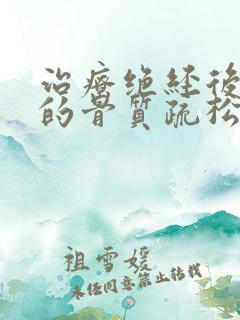 治療绝経後
的骨質疏松
祖雪媛
未经同意禁止转载